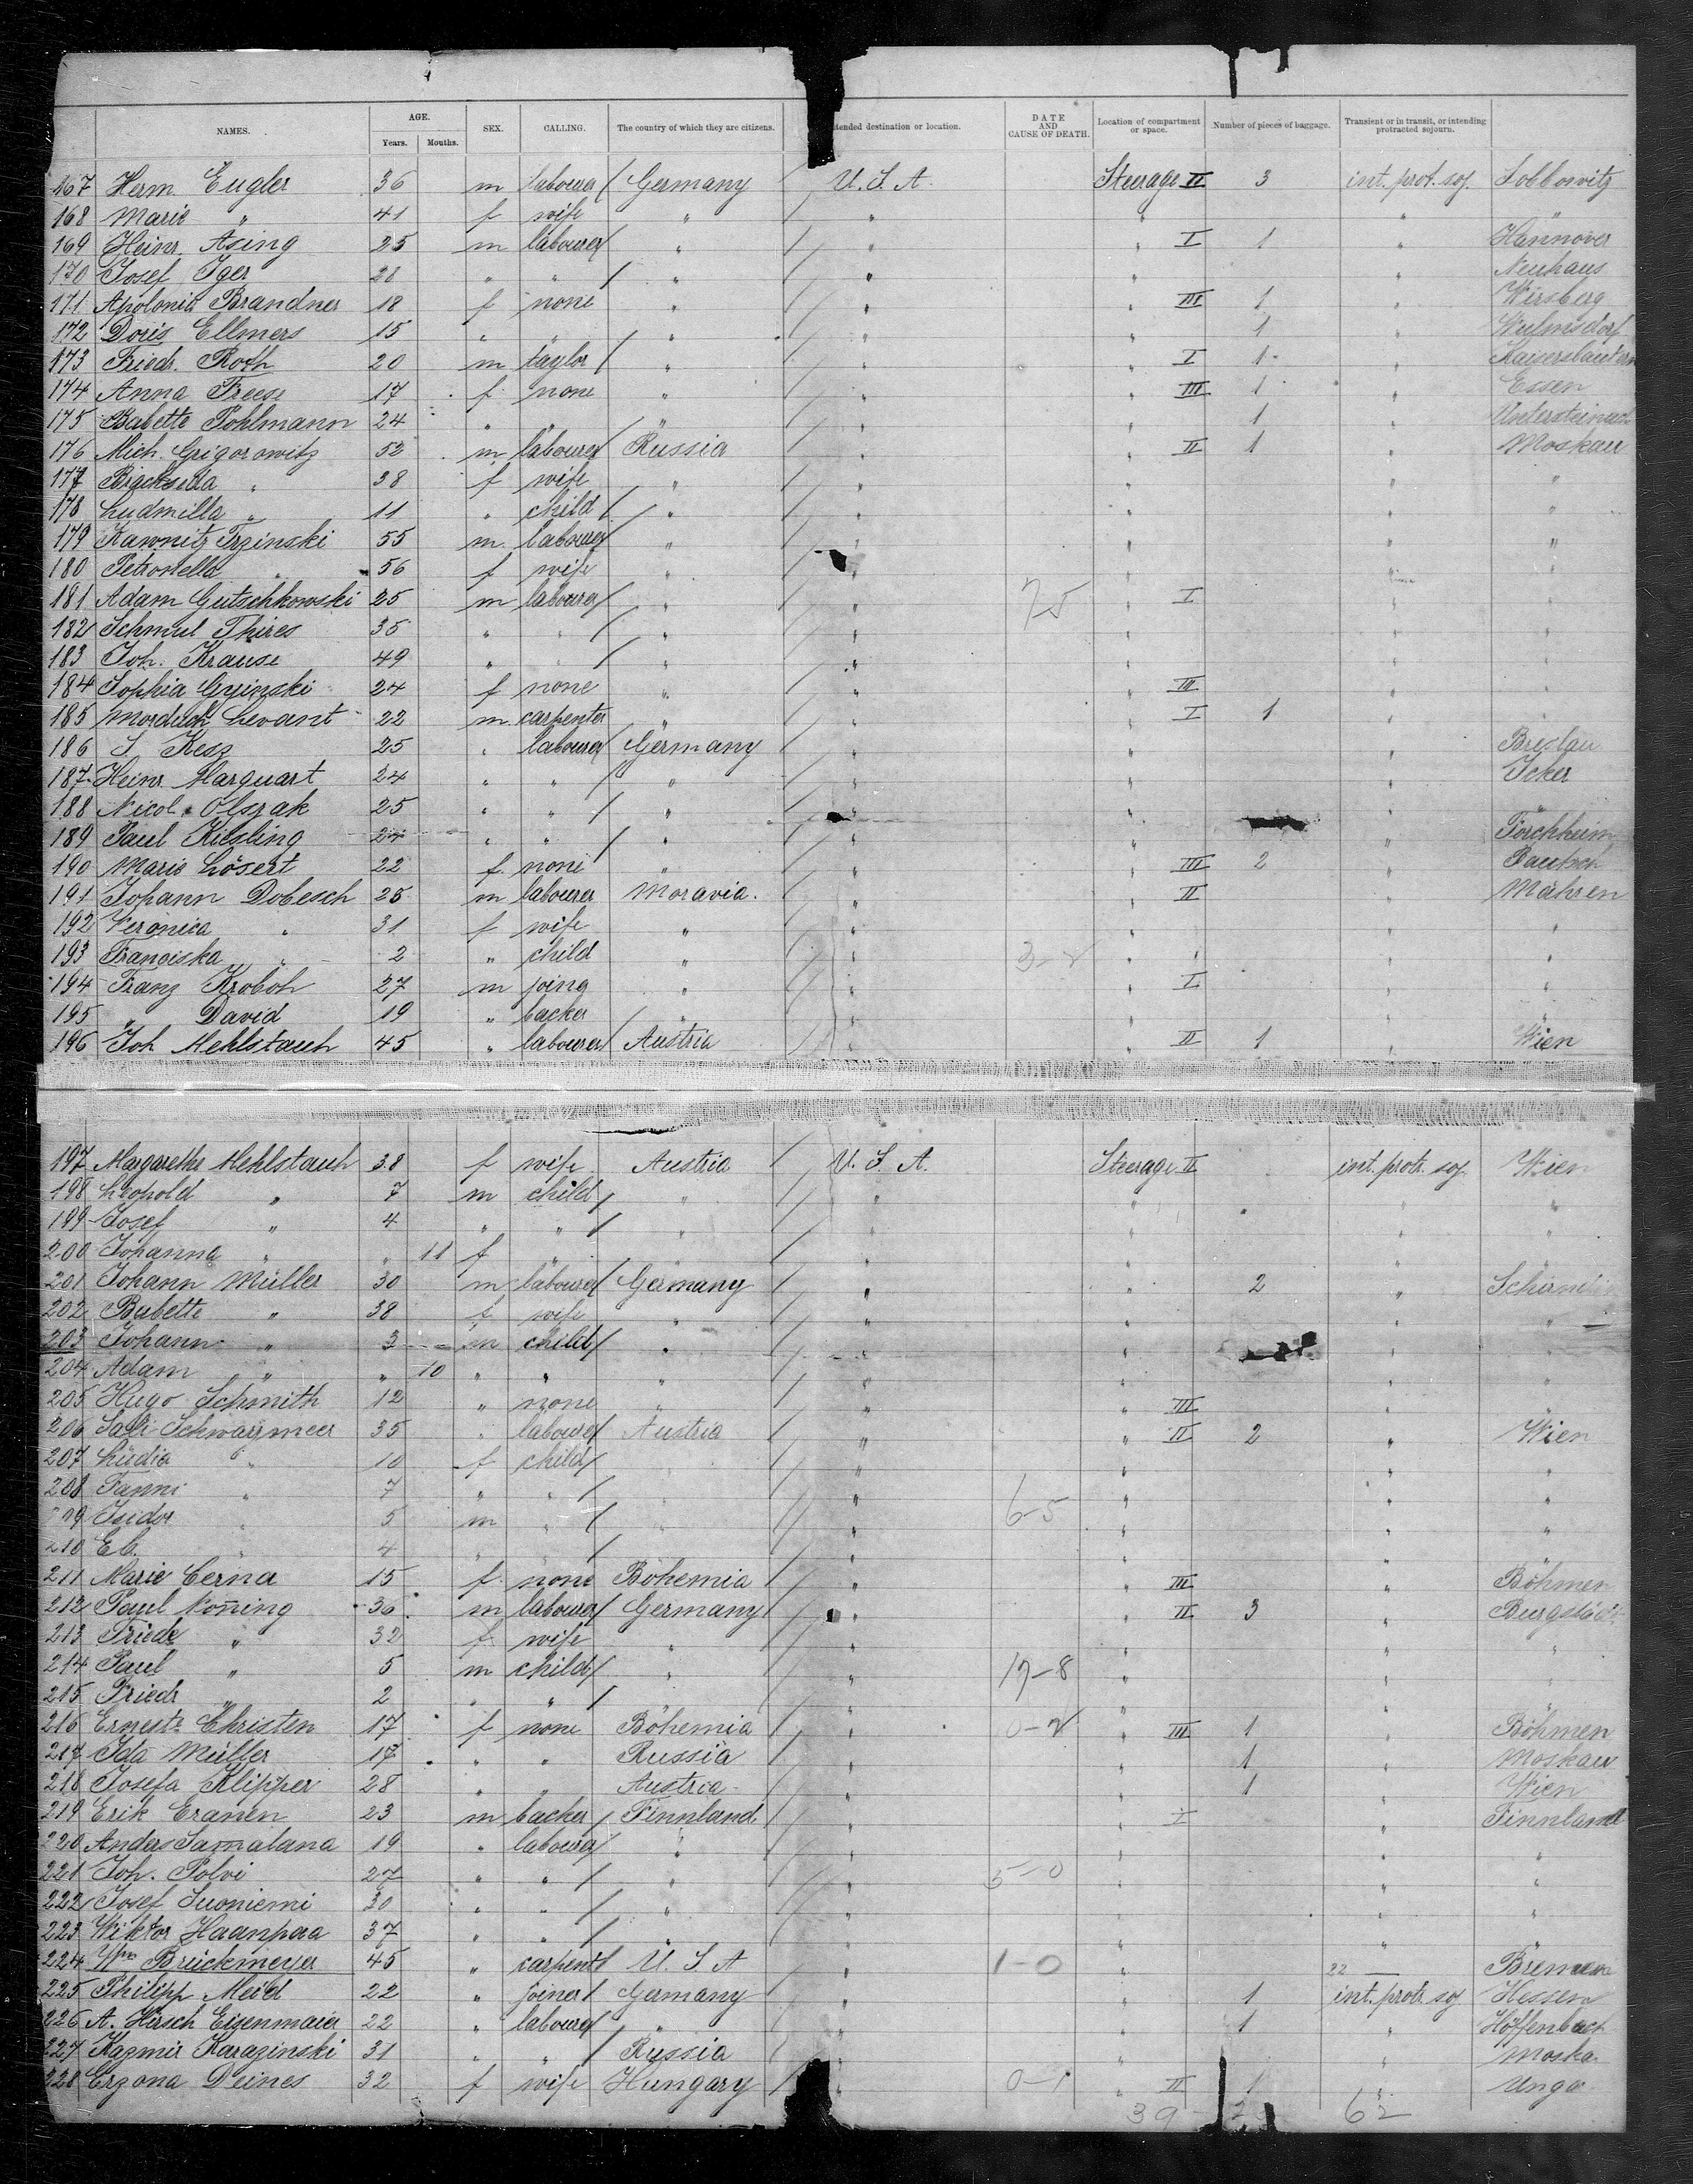 NAMES. AGE. Years. Months. SEX. CALLING. The country of which they are citizens. tended destination or location. DATE AND CAUSE OF DEATH. Location of compartment or space. Number of pieces of baggage. Transient or in transit, or intending protracted sojourn.
167 Herm Eugler 36 m labourer Germany U.S.A. Steerage II 3 int. prot. soj. Sobbowitz
168 Marie " 41 f wife " " " " "
169 Heinr. Asing 25 m labourer " " " I 1 " Hannover
170 Josef Iger 28 " " " " " " Neuhaus
171 Apolonia Brandner 18 f none " " " III 1 " Wirsberg
172 Doris Ellmers 15 " " " " " 1 " Wulmsdorf
173 Friedr. Roth 20 m taylor " " " I 1 " Kaiserslautern
174 Anna Freese 17 f none " " " III 1 " Essen
175 Babette Pohlmann 24 " " " " " 1 " Untersteinach
176 Mich. Grigorowitz 52 m labourer Russia " " II 1 " Moskau
177 " 38 f wife " " " " "
178 Ludmilla " 11 " child " " " " "
179 Kawnitz Trzinski 55 m labourer " " " " "
180 Petronella " 56 f wife " " " " "
181 Adam Gutschkowski 25 m labourer " " 75 " I " "
182 Schmul Thires 35 " " " " " " "
183 Joh. Krause 49 " " " " " " "
184 Sophia Gyinski 24 f none " " " III " "
185 Morduch Levant 22 m carpenter " " " I 1 " "
186 S. Kesz 25 " labourer Germany " " " Breslau
187 Heinr. Marquart 24 " " " " " " Icker
188 Nicol. Olszak 25 " " " " " " "
189 Paul Kiesling 24 " " " " " " Forchheim
190 Marie Lösert 22 f. none " " " III 2 " Bautsch
191 Johann Dobesch 25 m labourer Moravia. " " II " Mähren
192 Veronica " 31 f wife " " " " "
193 Franciska " 2 " child " " 3-2 " " "
194 Franz Kroboh 27 m joing " " " I " "
195 " David 19 " backer " " " " "
196 Joh Mehlstauh 45 " labourer Austria " " II 1 " Wien
197 Margarethe Mehlstauh 38 f wife Austria U.S.A. Steerage II int. prot. soj. Wien
198 Leopold " 7 m child " " " " "
199 Josef " 4 " " " " " " "
200 Johanna " " 11 f " " " " " "
201 Johann Müller 30 m labourer Germany " " 2 "
202 Babette " 38 f wife " " " " "
203 Johann " 3 m child " " " " "
204 Adam " " 10 " " " " " " "
205 Hugo Schmith 12 " none " " " III " "
206 Sali Schwarzmeer 35 " labourer Austria " " II 2 " Wien
207 Ludia " 10 f child " " " " "
208 Fanni " 7 " " " " " " "
209 Isidor " 5 m " " " 6-5 " " "
210 " 4 " " " " " " "
211 Marie Cerna 15 f none Bohemia " " III " Böhmen
212 Paul Koning 36 m labourer Germany " " II 3 " Burgstädt
213 Friede " 32 f wife " " " " "
214 Paul " 5 m child " " 17-8 " " "
215 Friedr " 2 " " " " " " "
216 Erneste Christen 17 f none Bohemia " 0-2 " III 1 " Böhmen
217 Ida Müller 17 " " Russia " " 1 " Moskau
218 Josefa Klipper 28 " " Austria " " 1 " Wien
219 Erik Eranen 23 m backer Finnland " " I " Finnland
220 Anders Samalana 19 " labourer " " " " "
221 Joh. Polvi 27 " " " " 5-0 " " "
222 Josef Suoniemi 30 " " " " " " "
223 Wiktor Haanpaa 37 " " " " " " "
224 Wm Brückmeyer 45 " carpent U.S.A " 1-0 " 22 — Bremen
225 Philipp Meid 22 " joiner Germany " " 1 int. prot. soj Hessen
226 A. Hirsch Eisenmaier 22 " labourer " " " 1 "
227 Kazmir Karazinski 31 " " Russia " " " Moska
228 Erzona Deines 32 f wife Hungary " 0-1 " II 1 " Unga
39 62